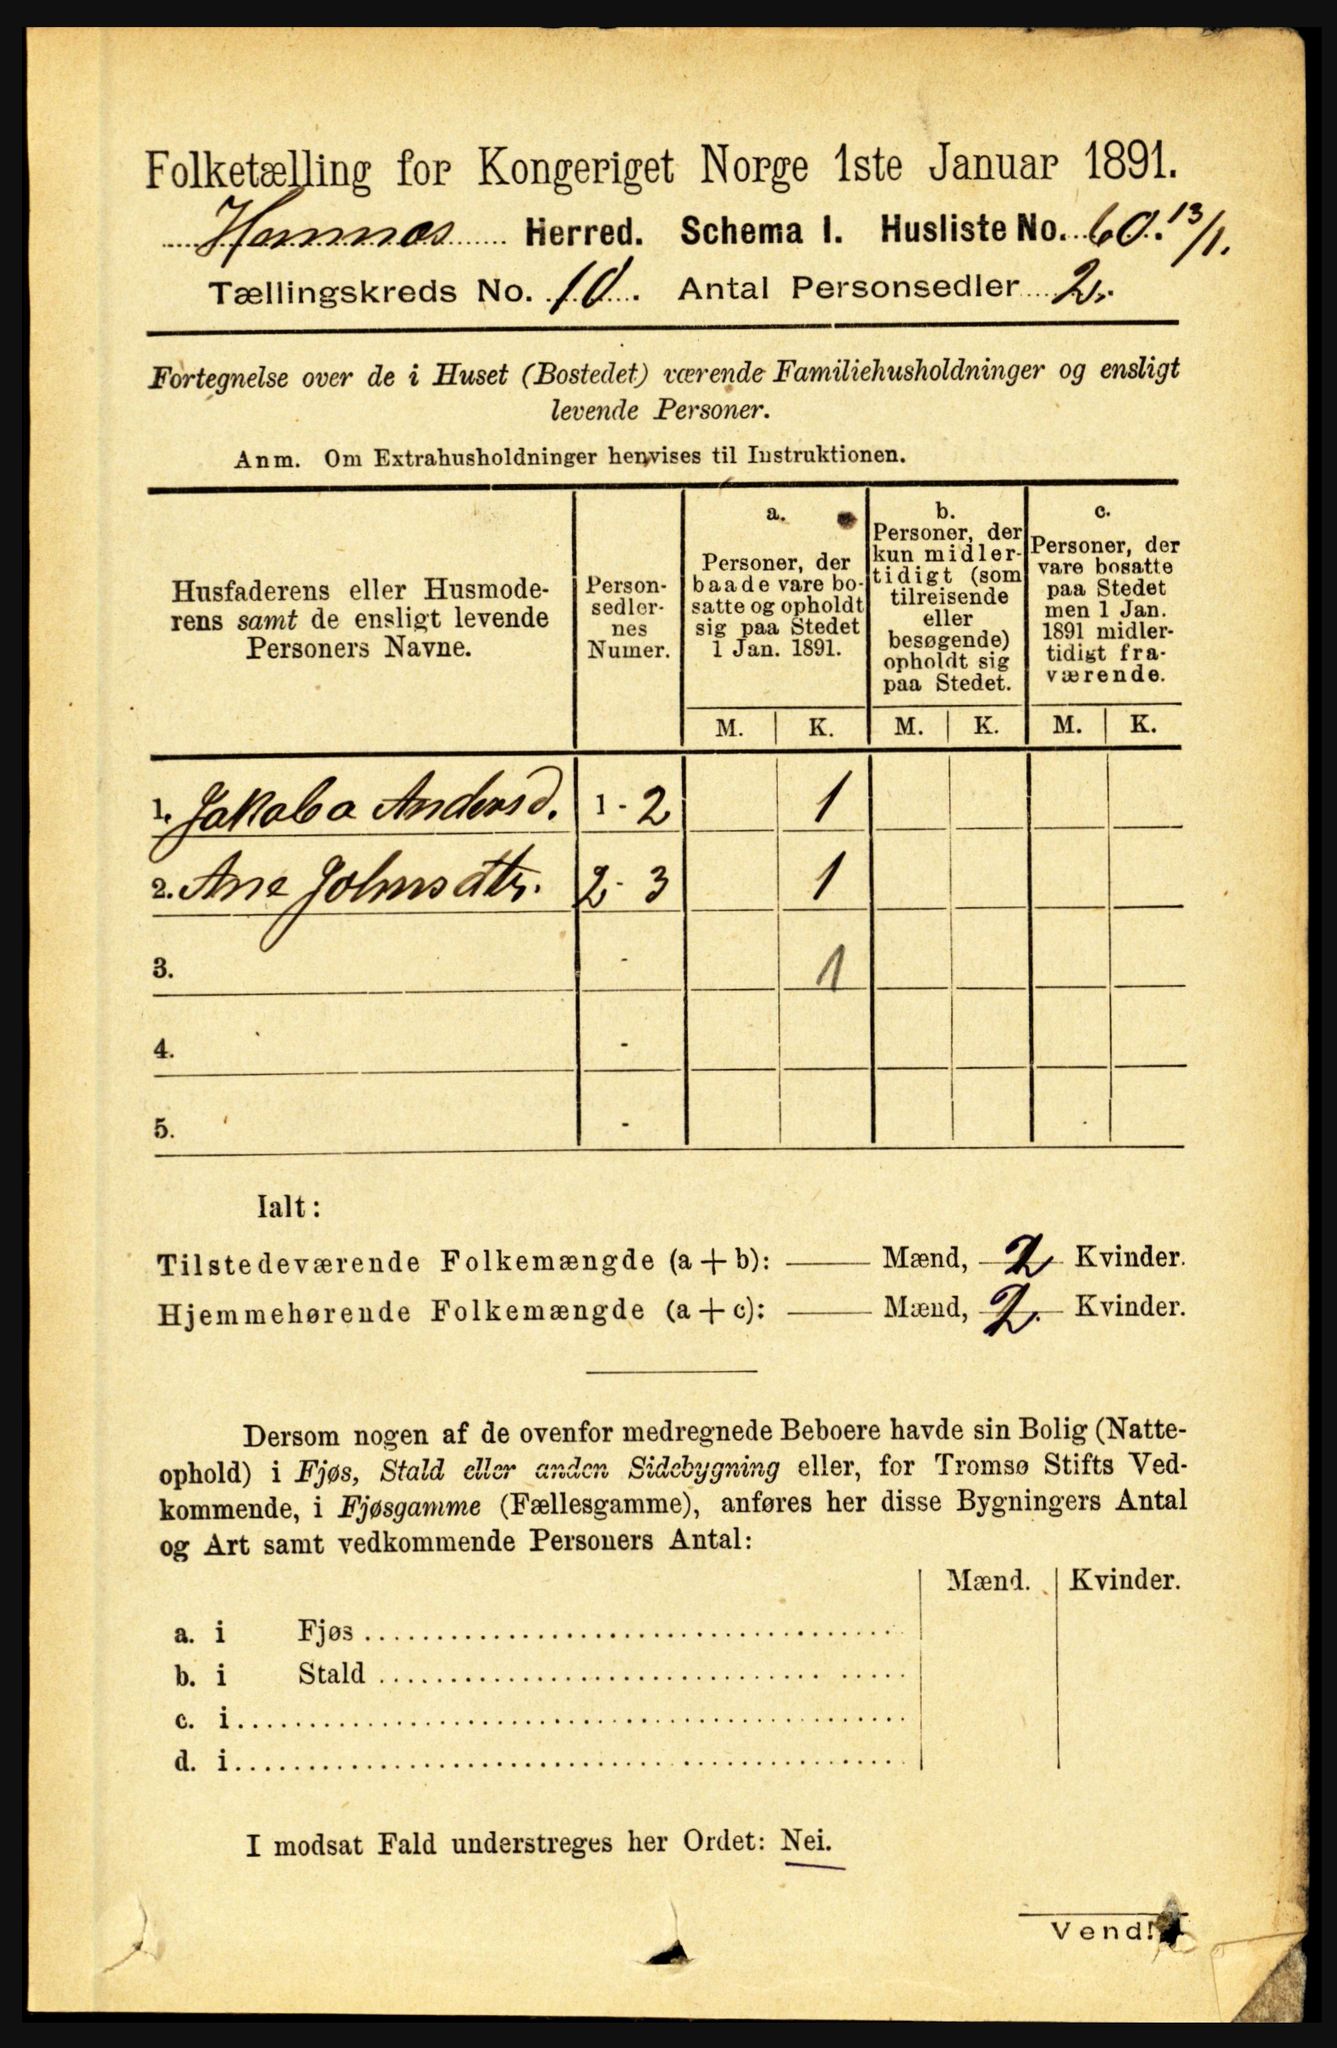 Folketælling for Kongeriget Norge 1ste Januar 1891.
Hemnæs Herred. Schema I. Husliste No. 60. 13/1.
Tællingskreds No. 10. Antal Personsedler 2.
Fortegnelse over de i Huset (Bostedet) værende Familiehusholdninger og ensligt
levende Personer.
Anm. Om Extrahusholdninger henvises til Instruktionen.
Husfaderens eller Husmode-
rens samt de ensligt levende
Personers Navne.
Person-
sedler-
nes
Numer.
a.
Personer, der
baade vare bo-
satte og opholdt
sig paa Stedet
1 Jan. 1891.
b.
Personer, der
kun midler-
tidigt (som
tilreisende
eller
besøgende)
opholdt sig
paa Stedet.
c.
Personer, der
vare bosatte
paa Stedet
men 1 Jan.
1891 midler-
tidigt fra-
værende.
M. K. M. K. M. K.
1. Jakoba Andersd. 1 - 2 1
2. Ane Johnsdtr. 2 - 3 1
3. - 1
4. -
5. -
Ialt:
Tilstedeværende Folkemængde (a + b): — Mænd, 2 Kvinder.
Hjemmehørende Folkemængde (a + c): — Mænd, 2. Kvinder.
Dersom nogen af de ovenfor medregnede Beboere havde sin Bolig (Natte-
ophold) i Fjøs, Stald eller anden Sidebygning eller, for Tromsø Stifts Ved-
kommende, i Fjøsgamme (Fællesgamme), anføres her disse Bygningers Antal
og Art samt vedkommende Personers Antal:
Mænd. Kvinder.
a. i Fjøs
b. i Stald
c. i
d. i
I modsat Fald understreges her Ordet: Nei.
Vend!